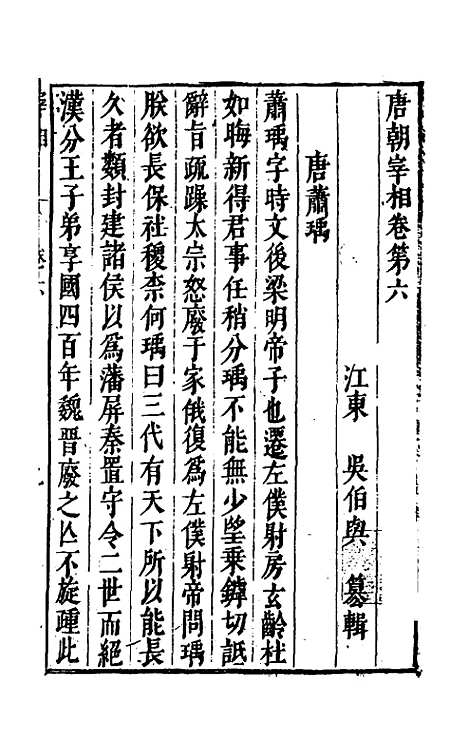 唐朝宰相卷第六
江東 吳伯與 纂輯
唐蕭瑀
蕭瑀字時文後梁明帝子也遷左僕射房玄齡杜
如晦新得君事任稍分瑀不能無少望乘鏬切詆
辭旨疏躁太宗怒廢于家俄復為左僕射帝問瑀
朕欲長保社稷柰何瑀曰三代有天下所以能長
久者類封建諸侯以為藩屏秦置守令二世而絕
漢分王子弟享國四百年魏晉廢之亾不旋踵此
宰相
卷六